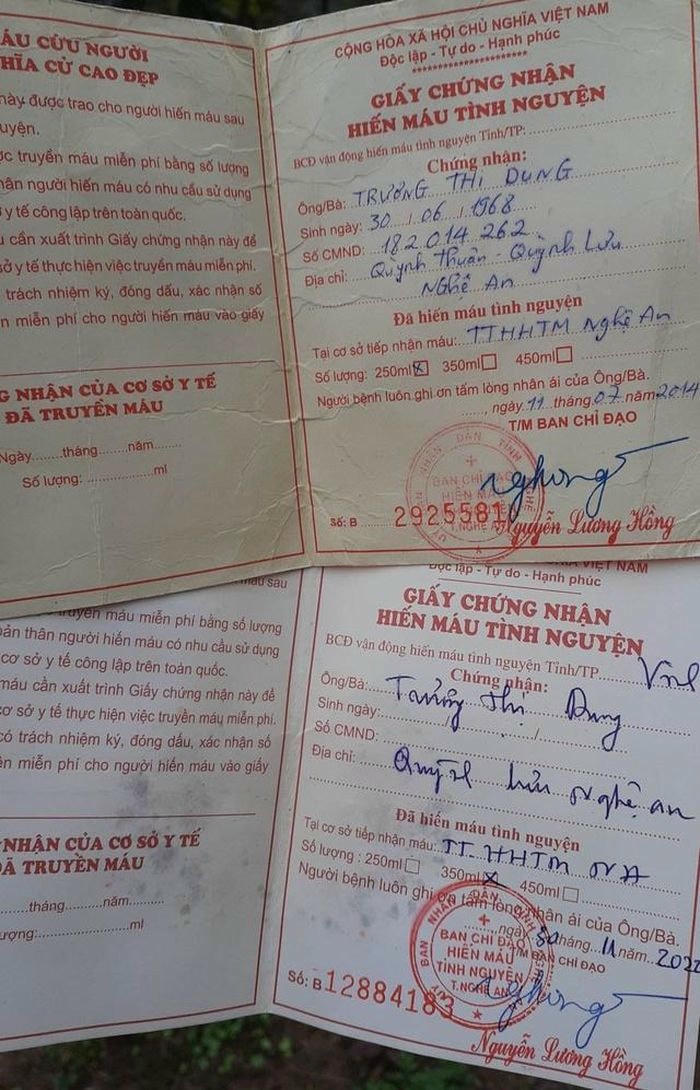 ÁU CỨU NGƯỜI
HĨA CỬ CAO ĐẸP
này được trao cho người hiến máu sau
uyện.
ợc truyền máu miễn phí bằng số lượng
hân người hiến máu có nhu cầu sử dụng
ở y tế công lập trên toàn quốc.
u cần xuất trình Giấy chứng nhận này để
sở y tế thực hiện việc truyền máu miễn phí.
trách nhiệm ký, đóng dấu, xác nhận số
ền miễn phí cho người hiến máu vào giấy
G NHẬN CỦA CƠ SỞ Y TẾ
ĐÃ TRUYỀN MÁU
Ngày.......tháng........năm.......
Số lượng: ................ml
CỘNG HÒA XÃ HỘI CHỦ NGHĨA VIỆT NAM
Độc lập - Tự do - Hạnh phúc
********************
GIẤY CHỨNG NHẬN
HIẾN MÁU TÌNH NGUYỆN
BCĐ vận động hiến máu tình nguyện Tỉnh/TP:
Chứng nhận:
Ông/Bà: TRƯƠNG THỊ DUNG
Sinh ngày: 30 / 06 / 1968
Số CMND: 182014262
Địa chỉ: Quỳnh Thuận - Quỳnh Lưu
Nghệ An
Đã hiến máu tình nguyện
Tại cơ sở tiếp nhận máu: TTHHTM Nghệ An
Số lượng: 250ml☒ 350ml☐ 450ml☐
Người bệnh luôn ghi ơn tấm lòng nhân ái của Ông/Bà.
......, ngày 11 tháng 07 năm 2014
T/M BAN CHỈ ĐẠO
ỦY BAN NHÂN DÂN TỈNH NGHỆ
BAN CHỈ ĐẠO
HIẾN MÁU
TÌNH NGUYỆN
T.NGHỆ AN
Số: B 2925581
Nguyễn Lương Hồng
máu sau
truyền máu miễn phí bằng số lượng
bản thân người hiến máu có nhu cầu sử dụng
cơ sở y tế công lập trên toàn quốc.
máu cần xuất trình Giấy chứng nhận này để
cơ sở y tế thực hiện việc truyền máu miễn phí.
có trách nhiệm ký, đóng dấu, xác nhận số
ền miễn phí cho người hiến máu vào giấy
NHẬN CỦA CƠ SỞ Y TẾ
ĐÃ TRUYỀN MÁU
......tháng........năm........
ượng:................ml
VIỆT NAM
Độc lập - Tự do - Hạnh phúc
GIẤY CHỨNG NHẬN
HIẾN MÁU TÌNH NGUYỆN
BCĐ vận động hiến máu tình nguyện Tỉnh/TP
Chứng nhận:
Ông/Bà: Trương Thị Dung
Sinh ngày: / /
Số CMND:
Địa chỉ: Quỳnh Lưu Nghệ an
Đã hiến máu tình nguyện
Tại cơ sở tiếp nhận máu: TT HHTM NA
Số lượng : 250ml☐ 350ml☒ 450ml☐
Người bệnh luôn ghi ơn tấm lòng nhân ái của Ông/Bà.
ngày 30 tháng 11 năm
T/M BAN CHỈ ĐẠO
BAN NHÂN DÂN TỈNH
BAN CHỈ ĐẠO
HIẾN MÁU
TÌNH NGUYỆN
T.NGHỆ AN
Số: B 12884183
Nguyễn Lương Hồng